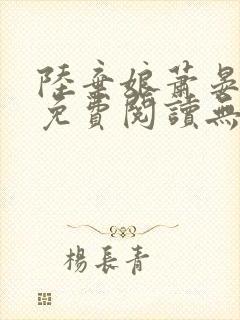 陸棄娘蕭晏
免費閱讀無
楊長青